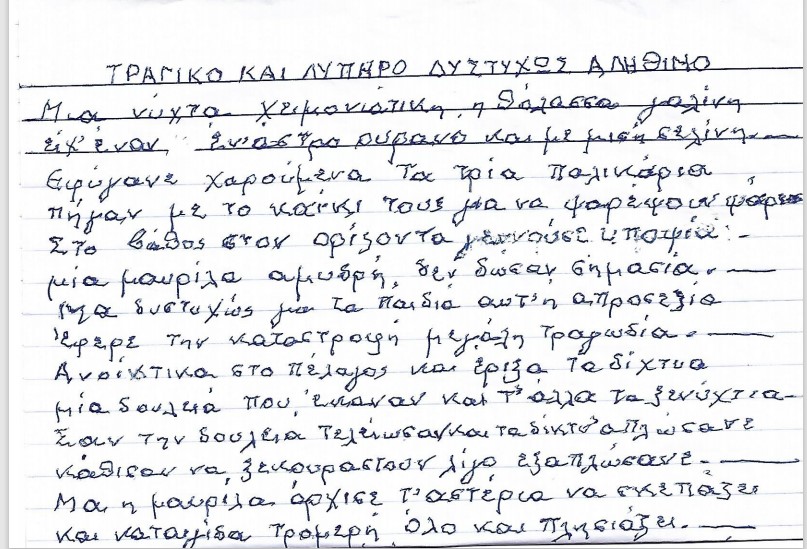 ΤΡΑΓΙΚΟ ΚΑΙ ΛΥΠΗΡΟ ΔΥΣΤΥΧΩΣ ΑΛΗΘΙΝΟ
Μια νύχτα χειμονιάτικη η θάλασσα γαλίνη
είχ' έναν έν'αστρο ουρανό και με μισή σελίνη.
Εφύγανε χαρούμενα τα τρία παλικάρια
πήγαν με το καίκι τους για να ψαρέψουν ψάρια
Στο βάθος στον ορίζοντα γεννούσε υποψία -
μία μαυρίλα αμυδρή, δεν δώσαν σημασία. -
Μα δυστυχώς για τα παιδιά αυτ'ή απροσεξία
έφερε την καταστροφή μεγάλη τραγωδία. -
Ανοίκτικα στο πέλαγος και έριξα τα δίχτυα
μία δουλειά που έκαναν και τ'άλλα τα ξενύχτια -
Σαν την δουλεια τελειωσαν και τα δίκτυ' απλώσανε
κάθισαν να ξεκουραστούν λίγο εξαπλώσανε. -
Μα η μαυρίλα άρχισε τ'αστέρια να σκεπάζει
και καταιγίδα τρομερή όλο και πλησιάζει. -